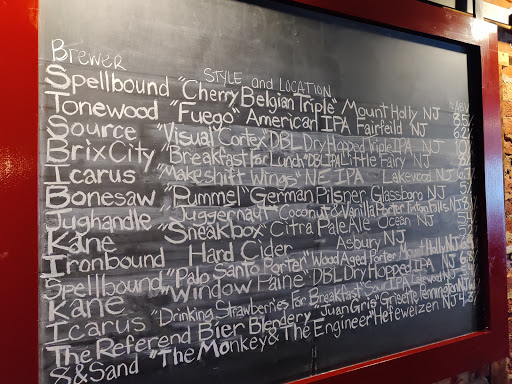 Brewer STYLE and LOCATION %ABV
Spellbound "Cherry Belgian Triple" Mount Holly NJ 8.5
Tonewood "Fuego" American IPA Fairfeild NJ 6.2
Source "Visual Cortex" DBL Dry Hopped Triple IPA NJ 10
BrixCity "Breakfast For Lunch" DBL IPA Little Fairy NJ
Icarus "Makeshift Wings" NE IPA Lakewood NJ 6.7
Bonesaw "Pummel" German Pilsner Glassboro NJ
Jughandle Juggernaut Coconut & Vanilla Porter Tinton Falls NJ
Kane "Sneakbox" Citra Pale Ale Ocean NJ
Ironbound Hard Cider Asbury NJ
Spellbound "Palo Santo Porter" Wood Aged Porter Mount Holly NJ
Kane "Window Paine" DBL Dry Hopped IPA NJ
Icarus "Drinking Strawberries For Breakfast" Sour IPA Lakewood NJ
The Referend Bier Blendery "Juan Gris" Grisette Pennington NJ
8&Sand "The Monkey & The Engineer" Hefeweizen NJ 4.8